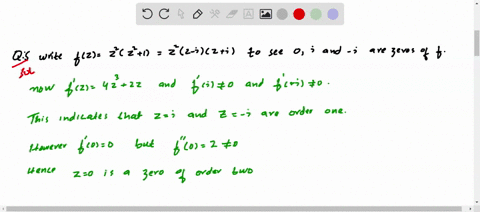 Q.5 write f(z)= z²(z²+1) = z²(z-i)(z+i) to see 0, i and -i are zeros of f.
Sol
now f'(z)= 4z³+2z and f'(i)≠0 and f'(-i)≠0.
This indicates that z=i and z=-i are order one.
However f'(0)=0 but f''(0)= 2 ≠0
Hence z=0 is a zero of order two